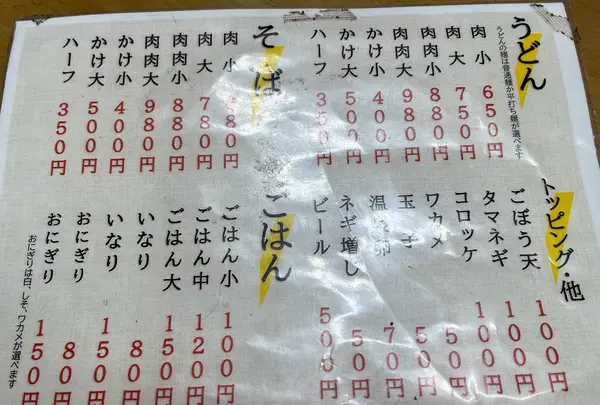 うどん
うどんの麺は普通麺か平打ち麺が選べます
肉 小 650円
肉 大 750円
肉肉小 880円
肉肉大 980円
かけ小 400円
かけ大 500円
ハーフ 350円
そば
肉 小
肉 大 780円
肉肉小 880円
肉肉大 980円
かけ小 400円
かけ大 500円
ハーフ 350円
トッピング・他
ごぼう天 100円
タマネギ 100円
コロッケ 100円
ワカメ 50円
玉子 50円
温泉卵 70円
ネギ増し 50円
ビール 500円
ごはん
ごはん小 100円
ごはん中 120円
ごはん大 150円
いなり 80円
いなり 150円
おにぎり 80円
おにぎり 150円
おにぎりは白、しそ、ワカメが選べます